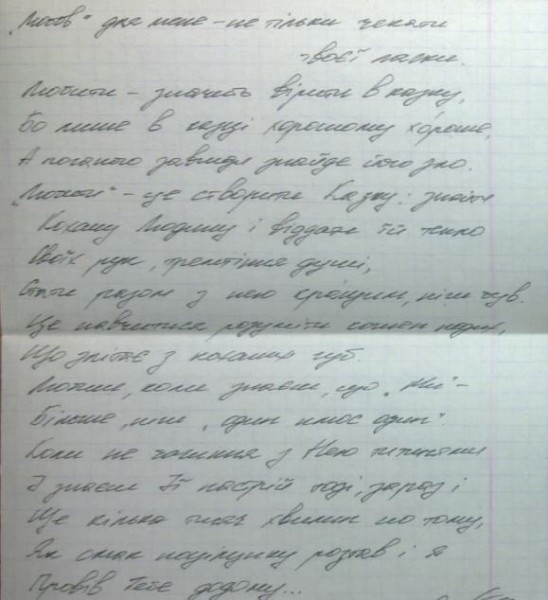 "Любов" для мене – не тільки чекати
твоєї ласки.
Любити – значить вірити в казку,
Бо лише в казці хорошому хороше,
А поганого завжди знайде його зло.
"Любити" – це створити Казку: знайти
Кохану Людину і віддати їй тепло
Своїх рук, тремтіння душі,
Стати разом з нею кращим, ніж був.
Це навчитися розуміти кожен подих,
Що злітає з коханих губ.
Любиш, коли знаєш, що "Ми" –
Більше, ніж "один плюс один".
Коли не з Нею
І знаєш Її настрій тоді, зараз і
Ще кілька тисяч хвилин по тому,
Як смак поцілунку розтав і я
Провів Тебе додому...